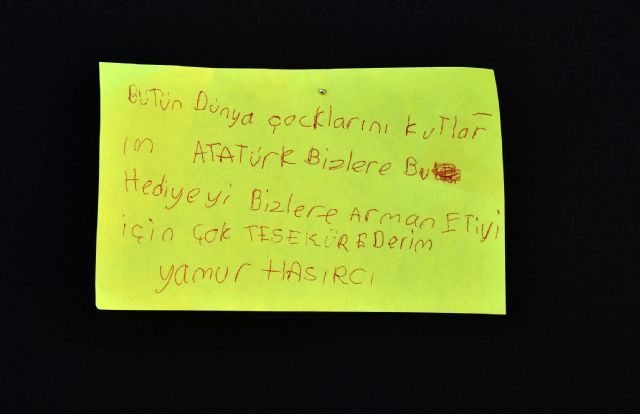 BÜTÜN Dünya çocklarını kutlar
ım ATATürk Bizlere Bu
Hediyeyi Bizlere Arman ETiyi
için çok TESEKÜR EDerim
yamur HASIRCI